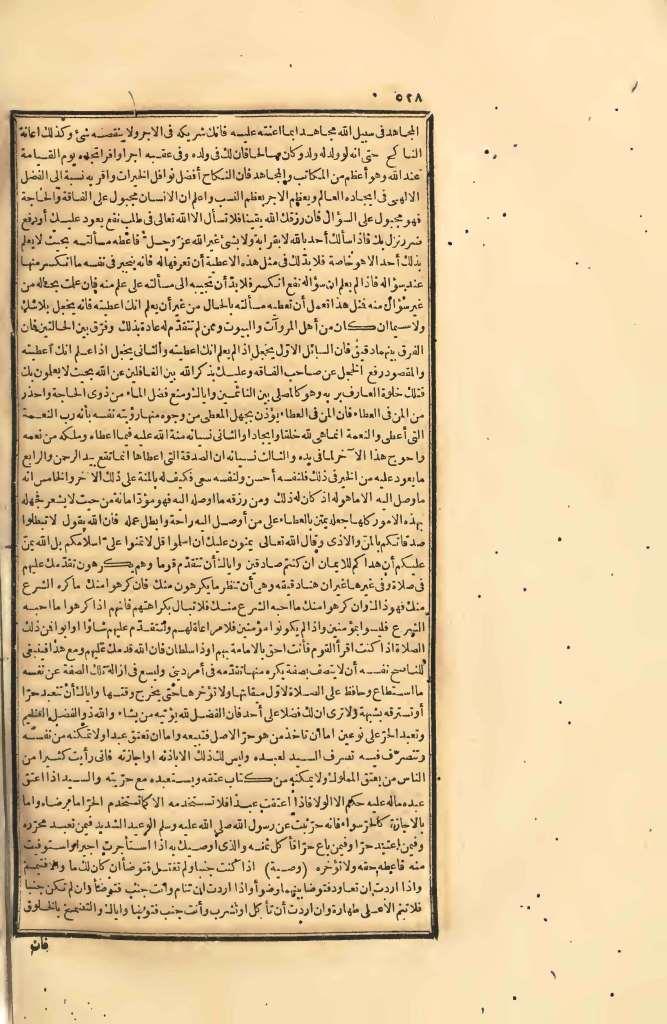 ٥٢٨
المجاهد في سبيل الله مجاهد ايما اعنته عليه فانك شريكه في الاجر ولا ينقصه شئ وكذلك اعانة
الناكح حتى انه لو ولد له ولد وكان صالحا فان لك في ولده وفي عقبه اجرا وافرا تجده يوم القيامة
عند الله وهو أعظم من المكاتب والمجاهد فان النكاح أفضل نوافل الخيرات وأقربه نسبة الى الفضل
الالهى في ايجاده العالم وبعظم الاجر بعظم النسب واعلم ان الانسان مجبول على الفاقة والحاجة
فهو مجبول على السؤال فان رزقك الله يقينا فلا تسأل الا الله تعالى في طلب نفع يعود عليك أو دفع
ضر نزل بك فاذا سألك أحد بالله لا بقرابة ولا بشئ غير الله عز وجل فأعطه مسألته بحيث لا يعلم
بذلك أحد الا هو خاصة فلا بد لك في مثل هذه الاعطية أن تعرفها له فانه ينجبر في نفسه ما انكسر منها
عند سؤاله فاذا لم يعلم ان سؤاله نفع انكسر فلا بد أن تجيبه الى مسألته على علم منه فان علمت بحاله من
غير سؤال منه فمثل هذا تعمل أن تعطيه مسألته بالحال من غير أن يعلم انك اعطيته فانه يخجل بلا شك
ولا سيما ان كان من أهل المروآت والبيوت وممن لم تتقدم له عادة بذلك وفرق بين الحالتين فان
الفرق بينهما دقيق فان السائل الاول يخجل اذا لم يعلم انك اعطيته والثاني يخجل اذا علم انك أعطيته
والمقصود رفع الخجل عن صاحب الفاقة وعليك بذكر الله بين الغافلين عن الله بحيث لا يعلمون بك
فتلك خلوة العارف بربه وهو كالمصلى بين النائمين واياك ومنع فضل الماء من ذوى الحاجة واحذر
من المن في العطاء فان المن في العطاء يؤذن بجهل المعطى من وجوه منها رؤيته نفسه بأنه رب النعمة
التى أعطى والنعمة انما هى لله خلقا وايجادا والثانى نسيانه منة الله عليه فيما اعطاه وملكه من نعمه
واحوج هذا الآخر لما في يده والثالث نسيانه ان الصدقة التى اعطاها انما تقع بيد الرحمن والرابع
ما يعود عليه من الخير في ذلك فلنفسه أحسن ولنفسه سعى فكيف له بالمنة على ذلك الآخر والخامس انه
ما وصل اليه الا ما هو له اذ كان له ذلك ومن رزقه ما اوصله اليه فهو مؤد أمانة من حيث لا يشعر فجهله
بهذه الامور كلها جعله يمتن بالعطاء على من أوصل اليه راحة وابطل عمله فان الله يقول لا تبطلوا
صدقاتكم بالمن والاذى وقال الله تعالى يمنون عليك ان اسلموا قل لا تمنوا على اسلامكم بل الله يمن
عليكم أن هداكم للايمان ان كنتم صادقين واياك أن تتقدم قوما وهم يكرهون تقدمك عليهم
في صلاة وفي غيرها غير ان هنا دقيقة وهى أن تنظر ما يكرهون منك فان كرهوا منك ما كره الشرع
منك فهو ذاك وان كرهوا منك ما احبه الشرع منك فلا تبال بكراهتهم فانهم اذا كرهوا ما احبه
الشرع فليسوا بمؤمنين واذا لم يكونوا مؤمنين فلا مراعاة لهم ولتتقدم عليهم شاؤا او ابوا فمن ذلك
الصلاة اذا كنت أقرأ القوم فأنت احق بالامامة بهم او ذا سلطان فان الله قدمك عليهم ومع هذا فينبغى
للناصح نفسه أن لا يتصف بصفة يكره منها تقدمه في أمر دينى وليسع في ازالة تلك الصفة عن نفسه
ما استطاع وحافظ على الصلاة لاول ميقاتها ولا تؤخرها حتى يخرج وقتها واياك أن تتعبد حرا
أو تسترقه بشبهة ولا ترى ان لك فضلا على أحد فان الفضل لله يؤتيه من يشاء والله ذو الفضل العظيم
وتعبد الحر على نوعين اما ان تأخذ من هو حر الاصل فتبيعه واما ان تعتق عبدا ولا تمكنه من نفسه
وتتصرف فيه تصرف السيد لعبده وليس لك ذلك الا باذنه او اجازته فانى رأيت كثيرا من
الناس من يعتق المملوك ولا يمكنه من كتاب عتقه ويستعبده مع حريته والسيد اذا اعتق
عبده ماله عليه حكم الا الولاء فاذا اعتقت عبدا فلا تستخدمه الا كما تستخدم الحر اما برضاه واما
بالاجارة كالحر سواء فانه حر ثبت عن رسول الله صلى الله عليه وسلم الوعيد الشديد فيمن تعبد محرره
وفيمن اعتبد حرا وفيمن باع حرا فأكل ثمنه والذى أوصيك به اذا استأجرت اجيرا واستوفيت
منه فأعطه حقه ولا تؤخره (وصية) اذا كنت جنبا ولم تغتسل فتوضأ ان كان لك ماء والا فتيمم
واذا اردت ان تعاود فتوضأ بينهما وضوأ واذا اردت ان تنام وأنت جنب فتوضأ وان لم تكن جنبا
فلا تنم الا على طهارة وان اردت أن تأكل او تشرب وأنت جنب فتوضأ واياك والتضمخ بالخلوق
فان